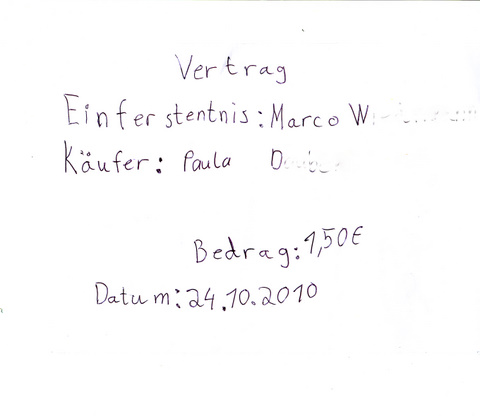 Vertrag
Einferstentnis: Marco W
Käufer: Paula D
Bedrag: 1,50€
Datum: 24.10.2010